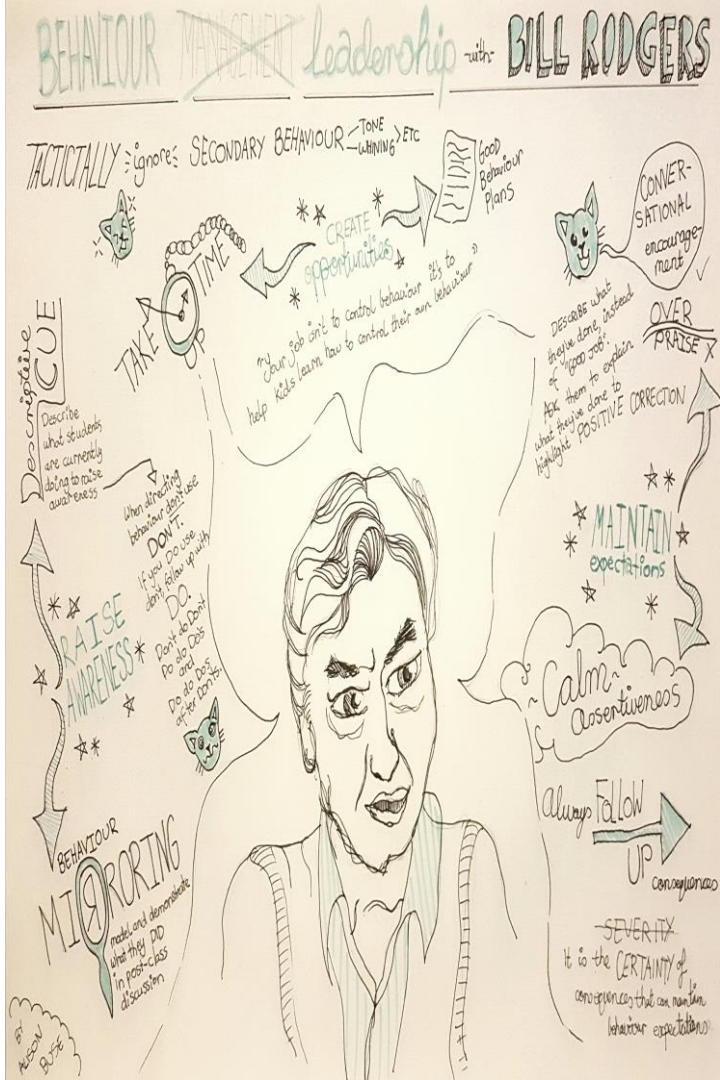 BEHAVIOUR MANAGEMENT Leadership -with- BILL RODGERS
TACTICTALLY ignore SECONDARY BEHAVIOUR TONE WHINING ETC
CREATE
opportunities
GOOD
Behaviour
Plans
TAKE UP TIME
"your job isn't to control behaviour it's to
help kids learn how to control their own behaviour"
CONVER-
SATIONAL
encourage-
ment
OVER
PRAISE
DESCRIBE what
they've done, instead
of "GOOD JOB".
ASK them to explain
what they've done to
highlight POSITIVE CORRECTION
Descriptive
CUE
Describe
what students
are currently
doing to raise
awareness
When directing
behaviour don't use
DON'T.
if you DO use
don't, follow up with
DO.
Don't do Dont
Do do Do's
and
Do do Dos
after Don'ts.
RAISE
AWARENESS
MAINTAIN
expectations
~Calm~
assertiveness
Always FOLLOW
UP
consequences
SEVERITY
It is the CERTAINTY of
consequences that can maintain
behaviour expectations
BEHAVIOUR
MIRRORING
model and demonstrate
what they DID
in post-class
discussion
BY
ALISON
BUSE